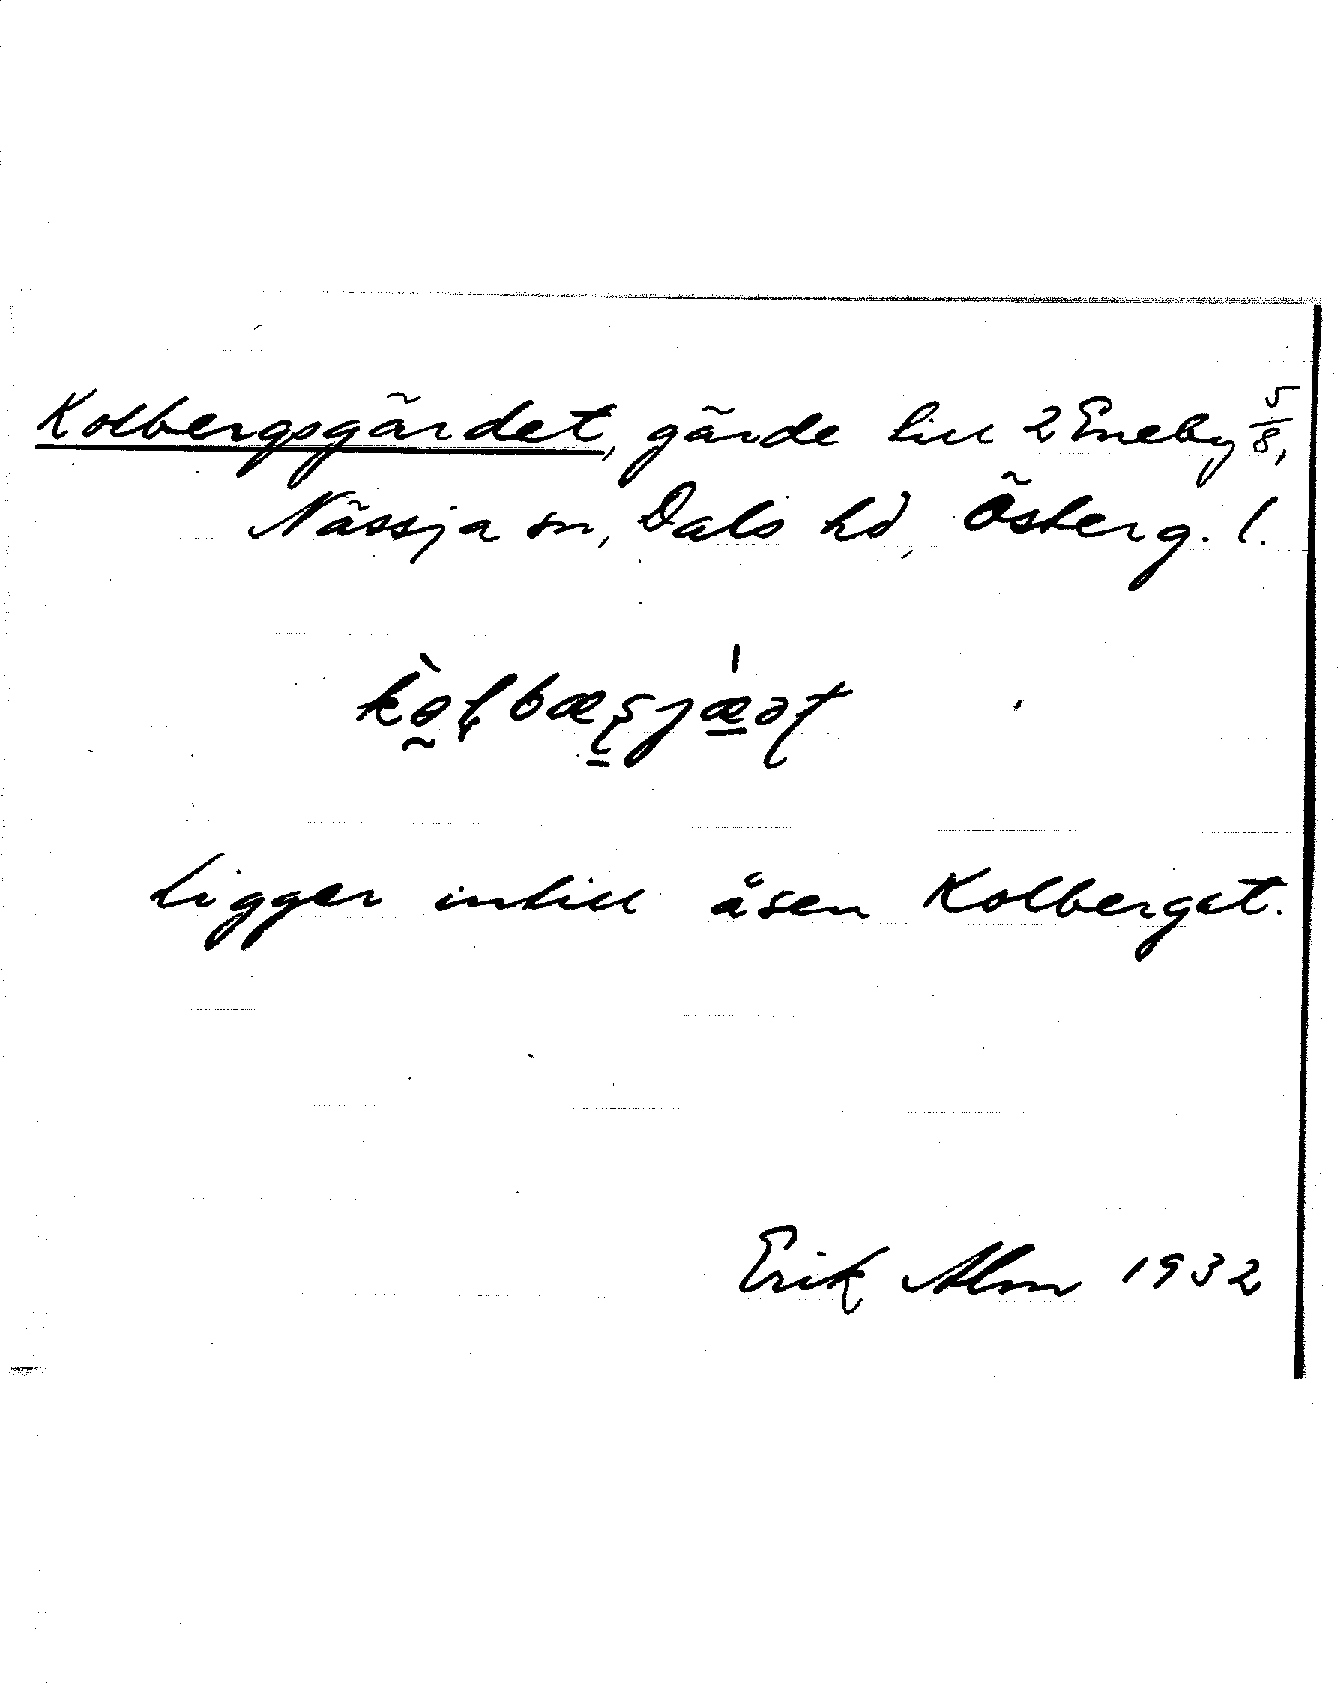 Kolbergsgärdet, gärde till 2 Eneby 5/8,
Nässja sn, Dals hd, Österg. l.
Ligger intill åsen Kolberget.
Erik Alm 1932